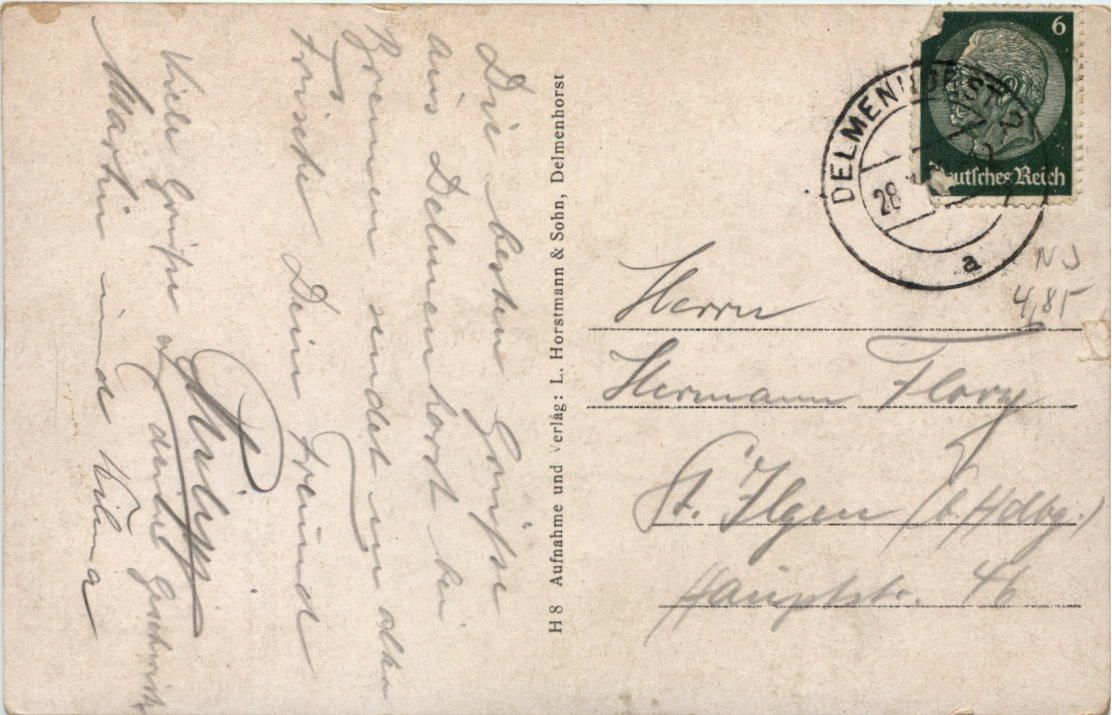 Die besten Grüße
aus Delmenhorst bei
Bremen sendet in alter
Frische Dein Freund
Philipp
Viele Grüße
Martin und
H 8 Aufnahme und Verlag: L. Horstmann & Sohn, Delmenhorst
6
Deutsches Reich
DELMENHORST
28
a
N J
4,85
Herrn
Hermann Flory
St. Ilgen (b. Hdbg.)
Hauptstr. 46